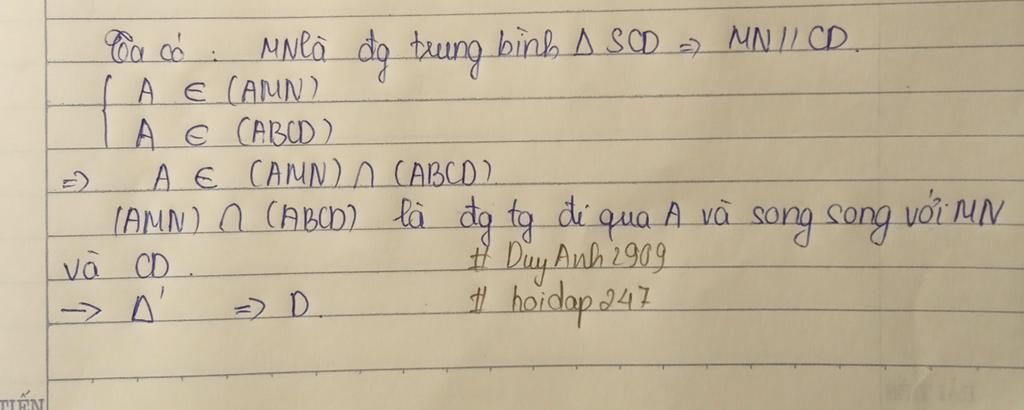 Ta có : MN là đg trung bình Δ SCD => MN // CD.
A ∈ (AMN)
A ∈ (ABCD)
=> A ∈ (AMN) ∩ (ABCD)
(AMN) ∩ (ABCD) là đg tg đi qua A và song song với MN
và CD. # DuyAnh2909
→ Δ' => D. # hoidap247
TIẾN